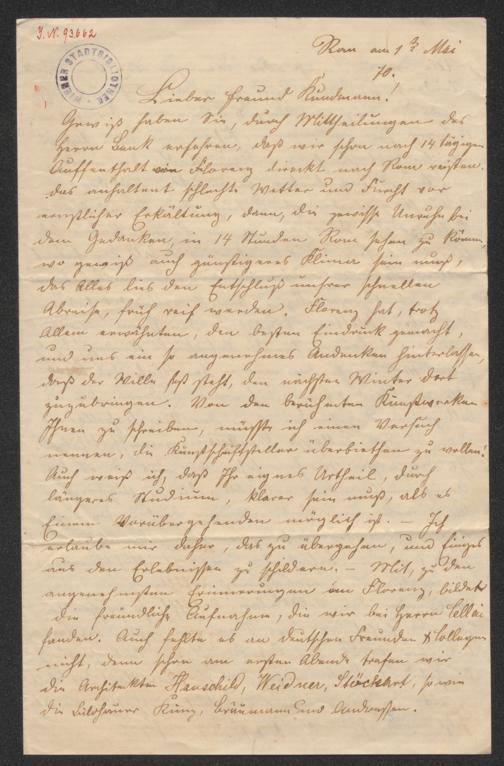 J. N. 93662
WIENER STADTBIBLIOTHEK
Rom am 1. Mai
70.
Lieber Freund Kundmann!
Gewiß haben Sie, durch Mittheilungen des
Herrn Bank erfahren, daß wir schon nach 14 tägigen
Auffenthalt Florenz direckt nach Rom reisten.
Das anhaltent schlechte Wetter und Furcht vor
ernstlicher Erkältung, dann, die gewisse Unruhe bei
dem Gedanken, in 14 Stunden Rom sehen zu können,
wo gewiß auch günstigeres Klima sein muß,
das Alles lies den Entschluß unsrer schnellen
Abreise, früh reif werden. Florenz hat, trotz
Allem erwähnten, den besten Eindruck gemacht,
und uns ein so angenehmes Andenken hinterlassen,
daß der Wille fest steht, den nächsten Winter dort
zuzubringen. Von den berühmten Kunstwerken
Ihnen zu schreiben, müßte ich einen Versuch
nennen, die Kunstschriftsteller überbiethen zu wollen!
Auch weiß ich, daß Ihr eignes Urtheil, durch
längeres Studium, klarer sein muß, als es
Einem Vorübergehenden möglich ist. — Ich
erlaube mir daher, das zu übergehen, und Einiges
aus den Erlebnissen zu schildern. — Mit, zu den
angenehmsten Erinnerungen an Florenz, bildet
die freundliche Aufnahme, die wir bei Herrn
fanden. Auch fehlte es an deutschen Freunden & Collegen
nicht, denn schon am ersten Abende trafen wir
die Architekten Hauschild, Weidner, Stöckhart, so wie
die Bildhauer Kunz, Bäumann und Andressen.